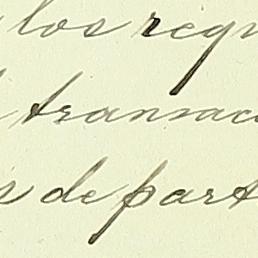 los requ
transac
s depart